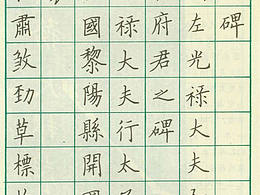 碑
左光祿大夫
府君之碑
祿大夫行太
國黎陽縣開
肅勁草標